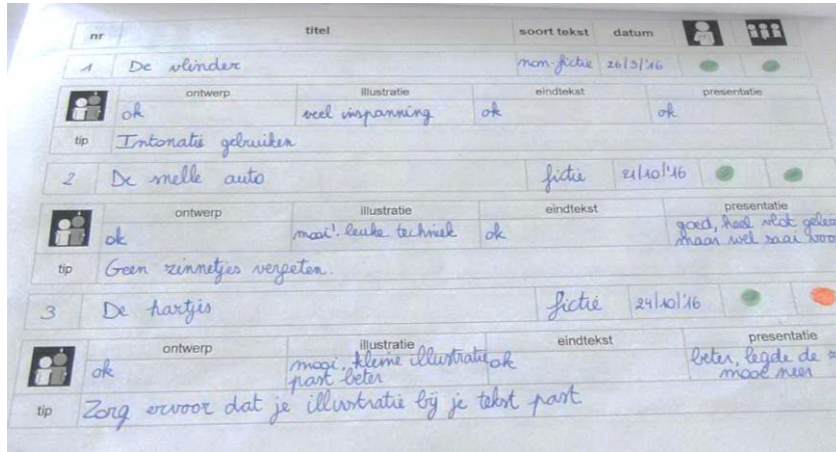 nr titel soort tekst datum
1 De vlinder non-fictie 26/9/'16
ontwerp illustratie eindtekst presentatie
ok veel inspanning ok ok
tip Intonatie gebruiken
2 De snelle auto fictie 21/10/'16
ontwerp illustratie eindtekst presentatie
ok mooi! leuke techniek ok goed, heel vlot
maar wel saai
tip Geen zinnetjes vergeten.
3 De hartjes fictie 24/10/'16
ontwerp illustratie eindtekst presentatie
ok mooi, kleine illustratie ok beter, legde de
past beter mooi neer
tip Zorg ervoor dat je illustratie bij je tekst past.